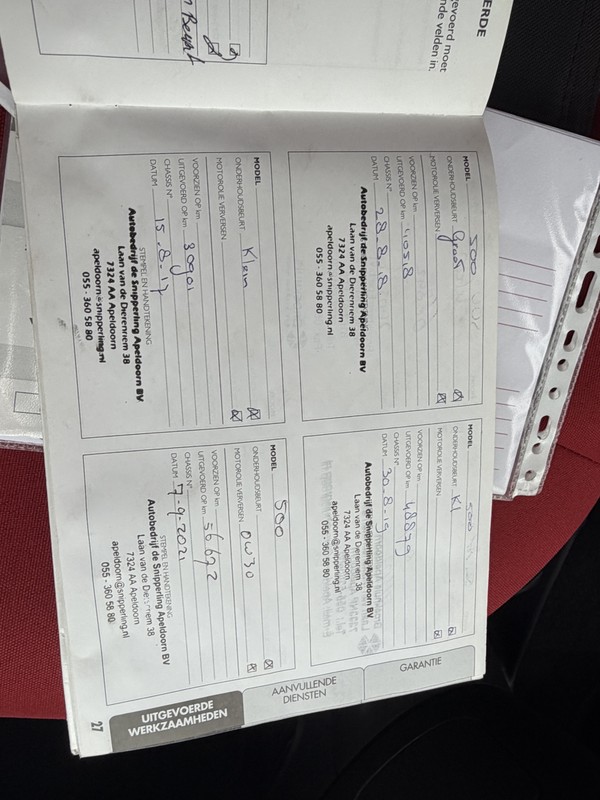 ERDE
gevoerd moet
nde velden in.
MODEL
ONDERHOUDSBEURT Klein
MOTOROLIE VERVERSEN
VOORZIEN OP km
UITGEVOERD OP km 30901
CHASSIS N°
DATUM 15-8-17
STEMPEL EN HANDTEKENING
Autobedrijf de Snipperling Apeldoorn BV
Laan van de Dierenriem 38
7324 AA Apeldoorn
apeldoorn@snipperling.nl
055 - 360 58 80
MODEL 500
ONDERHOUDSBEURT Groot
MOTOROLIE VERVERSEN
VOORZIEN OP km
UITGEVOERD OP km
CHASSIS N°
DATUM 28-8-18
Autobedrijf de Snipperling Apeldoorn BV
Laan van de Dierenriem 38
7324 AA Apeldoorn
apeldoorn@snipperling.nl
055 - 360 58 80
MODEL 500
ONDERHOUDSBEURT
MOTOROLIE VERVERSEN OW30
VOORZIEN OP km
UITGEVOERD OP km 56692
CHASSIS N°
DATUM 7-9-2021
STEMPEL EN HANDTEKENING
Autobedrijf de Snipperling Apeldoorn BV
Laan van de Dierenriem 38
7324 AA Apeldoorn
apeldoorn@snipperling.nl
055 - 360 58 80
MODEL 500
ONDERHOUDSBEURT Kl
MOTOROLIE VERVERSEN
VOORZIEN OP km
UITGEVOERD OP km 48879
CHASSIS N°
DATUM 30-8-19
Autobedrijf de Snipperling Apeldoorn BV
Laan van de Dierenriem 38
7324 AA Apeldoorn
apeldoorn@snipperling.nl
055 - 360 58 80
GARANTIE
AANVULLENDE
DIENSTEN
UITGEVOERDE
WERKZAAMHEDEN
27